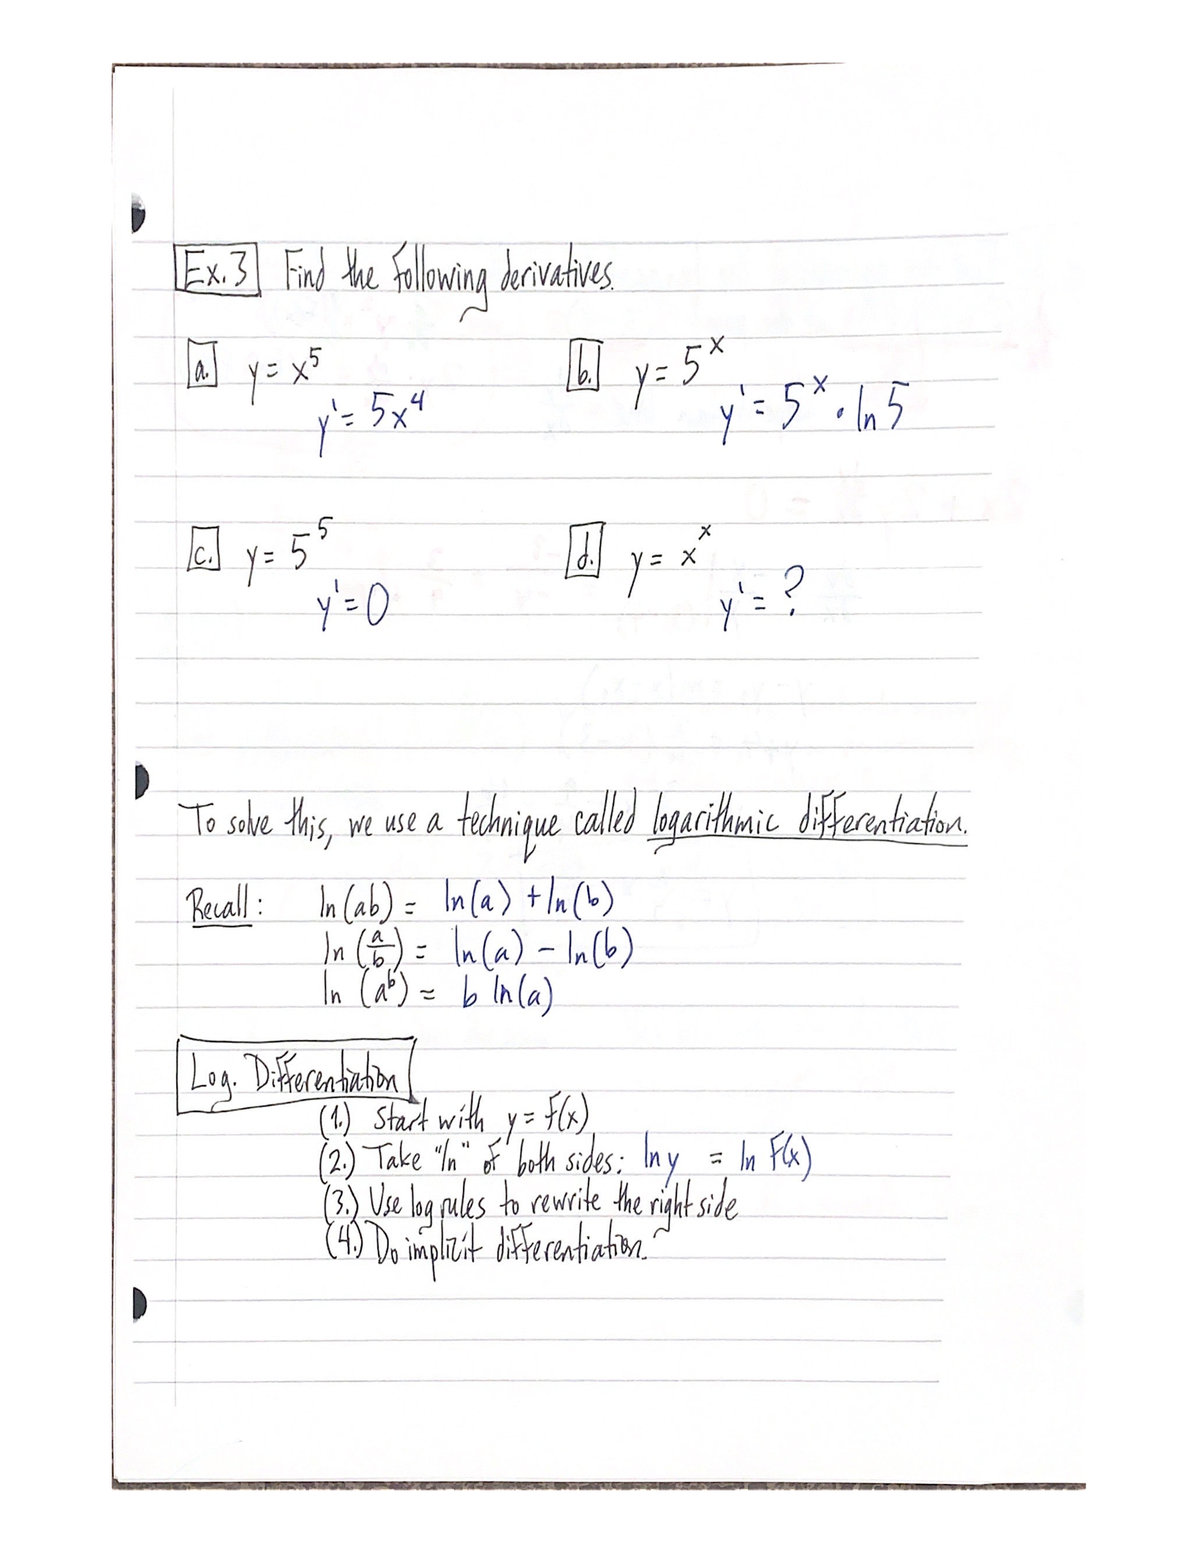 Ex. 3 Find the following derivatives.
a. y = x⁵
y' = 5x⁴
b. y = 5ˣ
y' = 5ˣ · ln 5
c. y = 5⁵
y' = 0
d. y = xˣ
y' = ?
To solve this, we use a technique called logarithmic differentiation.
Recall: ln(ab) = ln(a) + ln(b)
ln(a/b) = ln(a) - ln(b)
ln(aᵇ) = b ln(a)
Log. Differentiation
(1.) Start with y = f(x)
(2.) Take "ln" of both sides: ln y = ln f(x)
(3.) Use log rules to rewrite the right side
(4.) Do implicit differentiation.